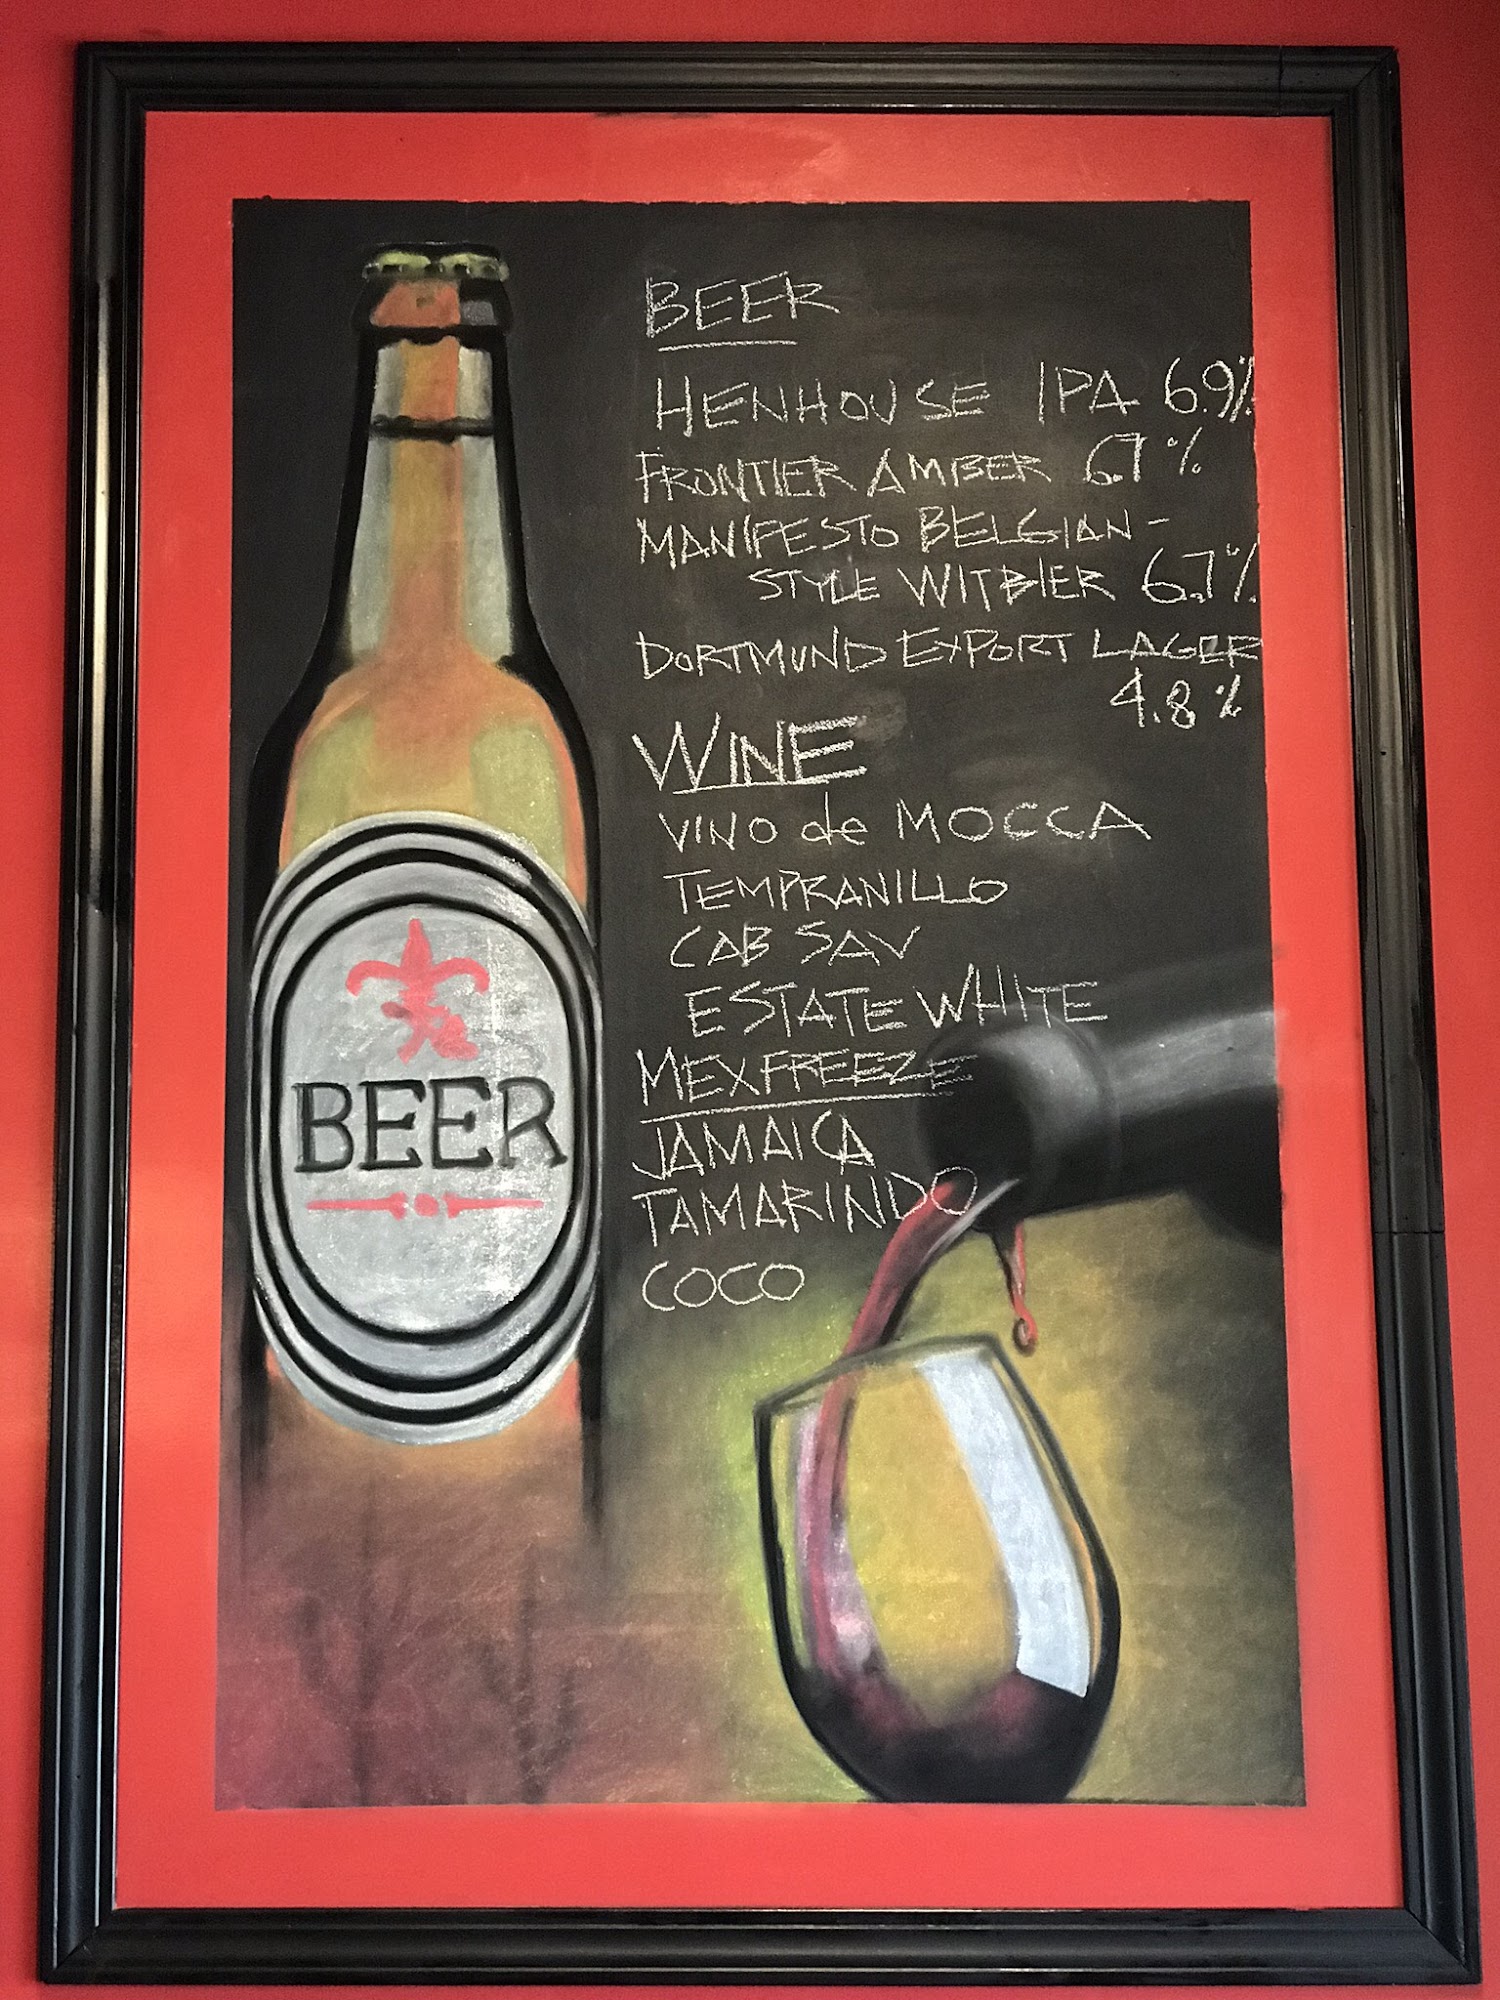 BEER
HENHOUSE IPA 6.9%
FRONTIER AMBER 6.7%
MANIFESTO BELGIAN-
STYLE WITBIER 6.7%
DORTMUND EXPORT LAGER
4.8%
WINE
VINO de MOCCA
TEMPRANILLO
CAB SAV
ESTATE WHITE
MEXFREEZE
JAMAICA
TAMARINDO
COCO
BEER